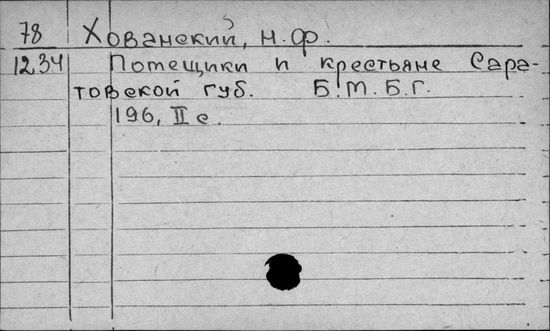 78 Хованский, н.ф.
1234 Потещики и крестьяне Сара-
товской губ. Б.М.Б.Г.
196, II с.